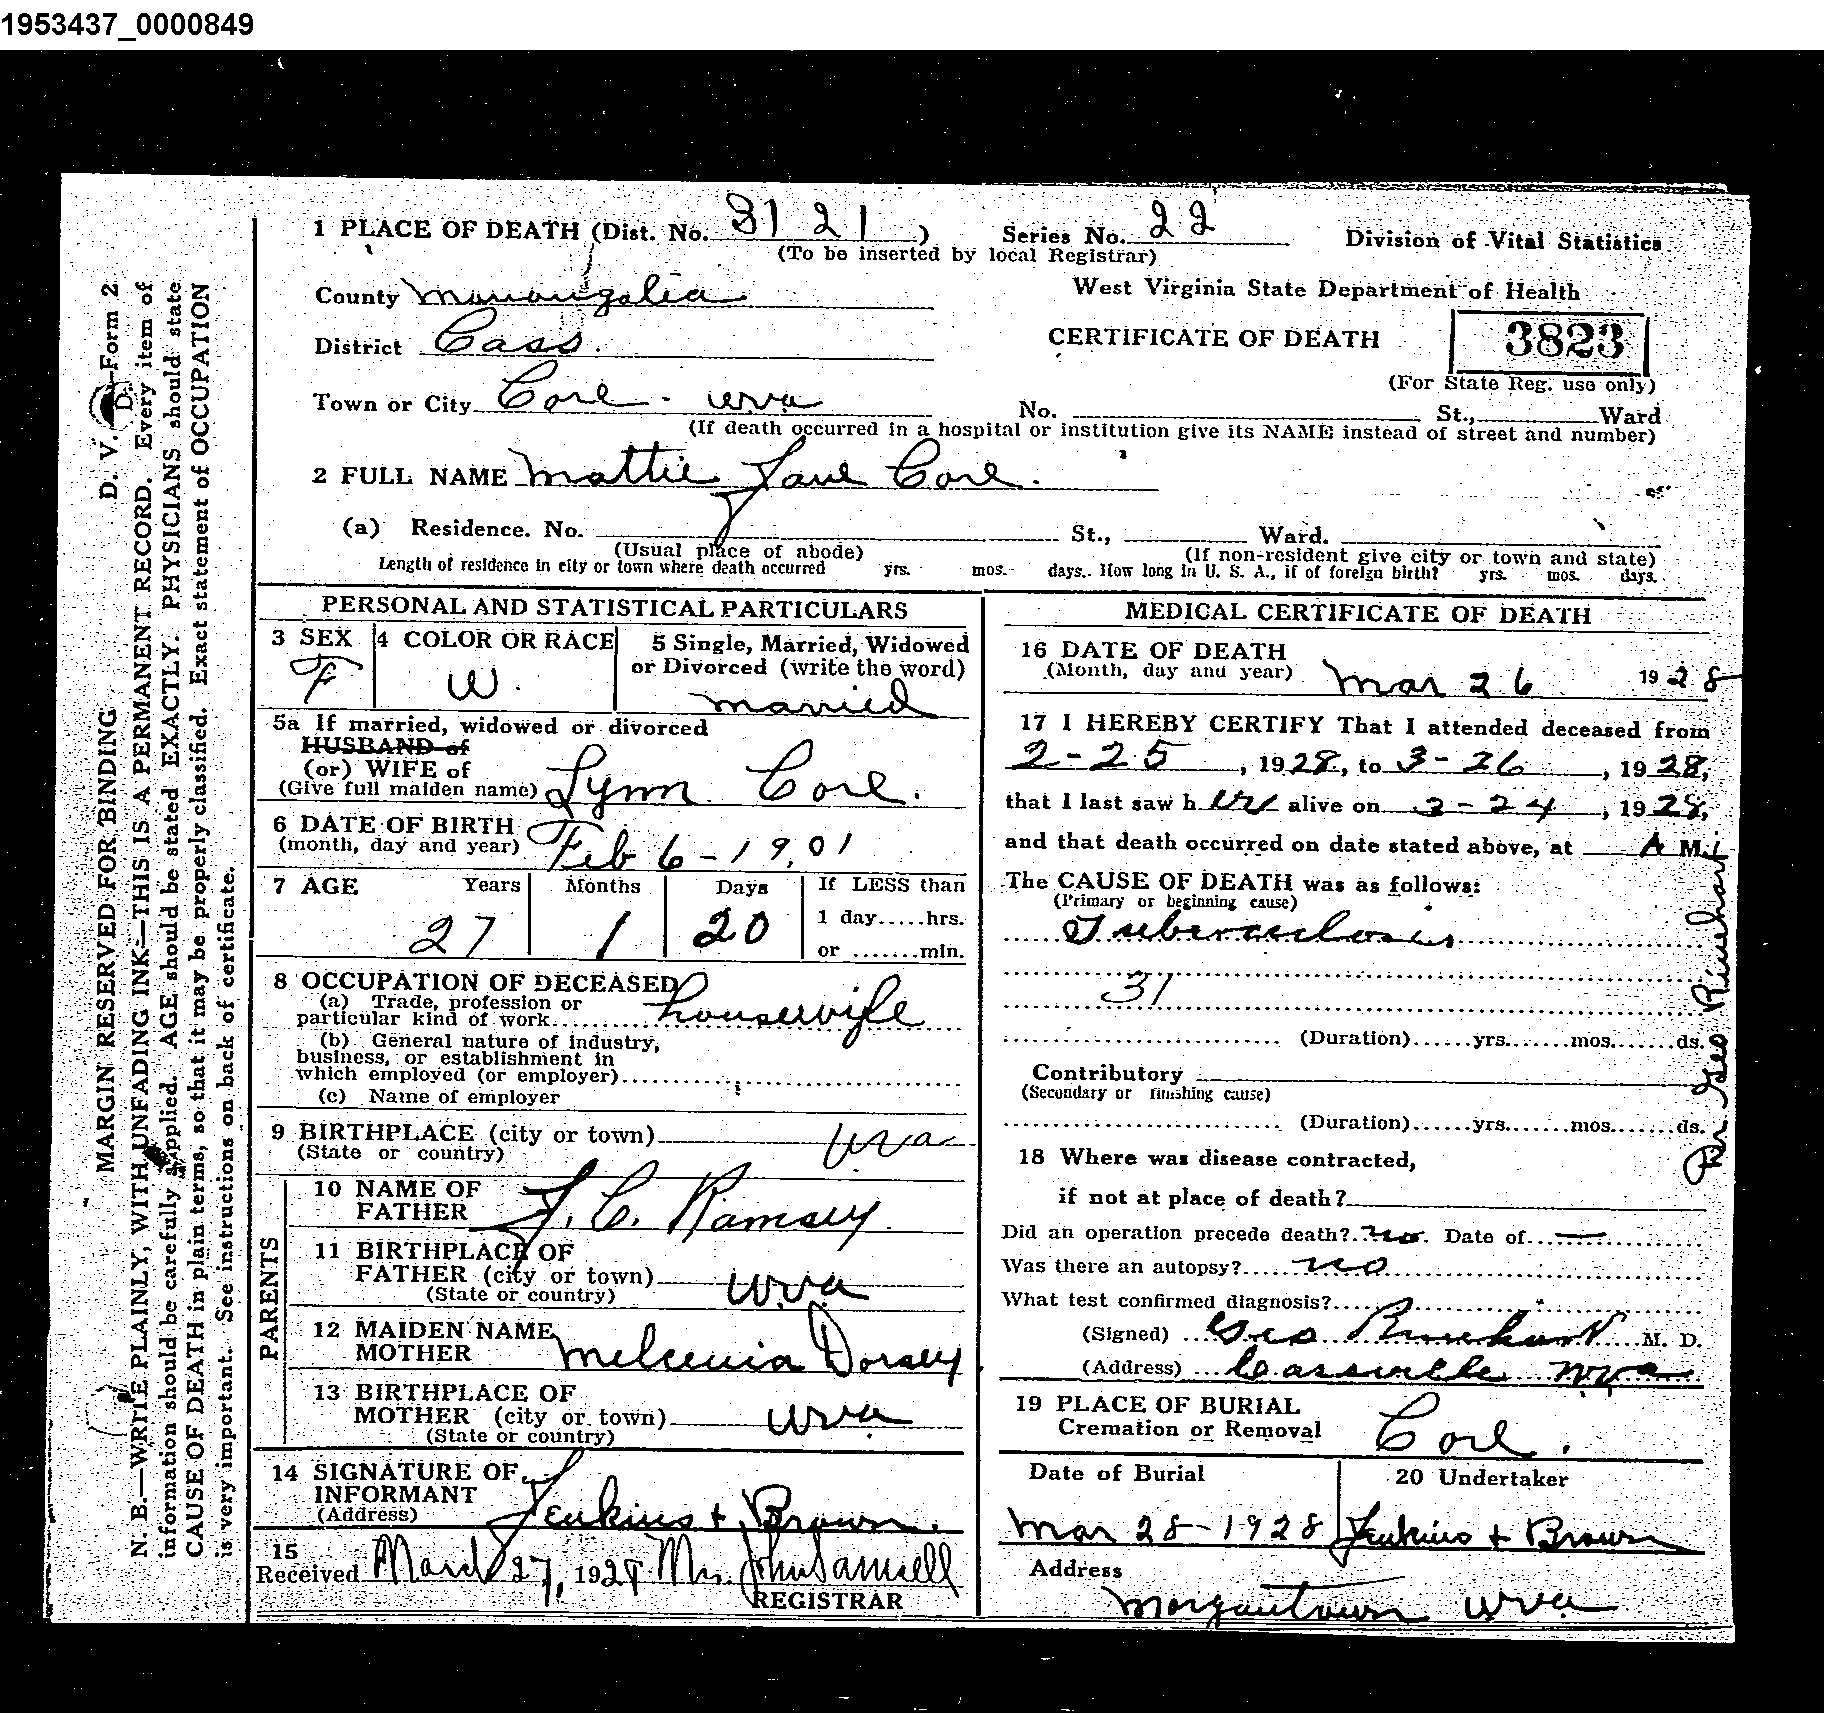 1953437_0000849
1 PLACE OF DEATH (Dist. No. 31 21) Series No. 22 Division of Vital Statistics
(To be inserted by local Registrar)
County Monongalia West Virginia State Department of Health
District Cass. CERTIFICATE OF DEATH 3823
(For State Reg. use only)
Town or City Core - wva No. St., Ward
(If death occurred in a hospital or institution give its NAME instead of street and number)
2 FULL NAME Mattie Jane Core.
(a) Residence. No. St., Ward.
(Usual place of abode) (If non-resident give city or town and state)
Length of residence in city or town where death occurred yrs. mos. days. How long in U. S. A., if of foreign birth? yrs. mos. days.
PERSONAL AND STATISTICAL PARTICULARS
3 SEX
F
4 COLOR OR RACE
W.
5 Single, Married, Widowed
or Divorced (write the word)
married
5a If married, widowed or divorced
HUSBAND of
(or) WIFE of
(Give full maiden name) Lynn Core.
6 DATE OF BIRTH
(month, day and year) Feb 6-1901
7 AGE Years Months Days If LESS than
1 day.....hrs.
27 1 20
or .......min.
8 OCCUPATION OF DECEASED
(a) Trade, profession or
particular kind of work housewife
(b) General nature of industry,
business, or establishment in
which employed (or employer)
(c) Name of employer
9 BIRTHPLACE (city or town) wva
(State or country)
PARENTS
10 NAME OF
FATHER J. C. Ramsey.
11 BIRTHPLACE OF
FATHER (city or town) wva
(State or country)
12 MAIDEN NAME
MOTHER Dorsey
13 BIRTHPLACE OF
MOTHER (city or town) wva
(State or country)
14 SIGNATURE OF
INFORMANT
(Address) Jenkins + Brown.
15
Received March 27, 1928 Mrs. John Samsell
REGISTRAR
MEDICAL CERTIFICATE OF DEATH
16 DATE OF DEATH
(Month, day and year) Mar 26 1928
17 I HEREBY CERTIFY That I attended deceased from
2-25, 1928, to 3-26, 1928,
that I last saw h er alive on 3-24, 1928,
and that death occurred on date stated above, at A M.
The CAUSE OF DEATH was as follows:
(Primary or beginning cause)
Tuberculosis
31
(Duration)......yrs.......mos.......ds.
Contributory
(Secondary or finishing cause)
(Duration)......yrs.......mos.......ds.
18 Where was disease contracted,
if not at place of death?
Did an operation precede death? no. Date of —
Was there an autopsy? no
What test confirmed diagnosis?
(Signed) Geo Rinehart M. D.
(Address) Cassville Wva
19 PLACE OF BURIAL
Cremation or Removal Core.
Date of Burial
Mar 28-1928
20 Undertaker
Jenkins + Brown
Address
Morgantown wva
Dr Geo Rinehart
D. V. Form 2
MARGIN RESERVED FOR BINDING
N. B.—WRITE PLAINLY, WITH UNFADING INK—THIS IS A PERMANENT RECORD. Every item of
information should be carefully supplied. AGE should be stated EXACTLY. PHYSICIANS should state
CAUSE OF DEATH in plain terms, so that it may be properly classified. Exact statement of OCCUPATION
is very important. See instructions on back of certificate.